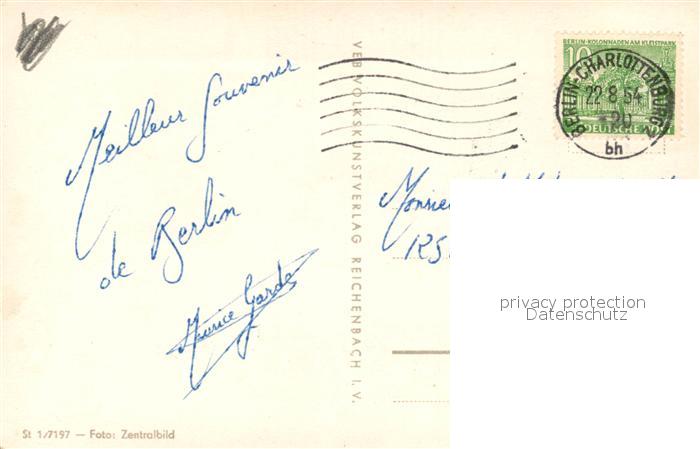 Meilleur Souvenir
de Berlin
Maurice Garde
St 1/7197 — Foto: Zentralbild
VEB VOLKSKUNSTVERLAG REICHENBACH I. V.
BERLIN-KOLONNADEN AM KLEISTPARK
10
DEUTSCHE POST
BERLIN-CHARLOTTENBURG 2
22.8.54
-20
bh
Monsieur
125
privacy protection
Datenschutz